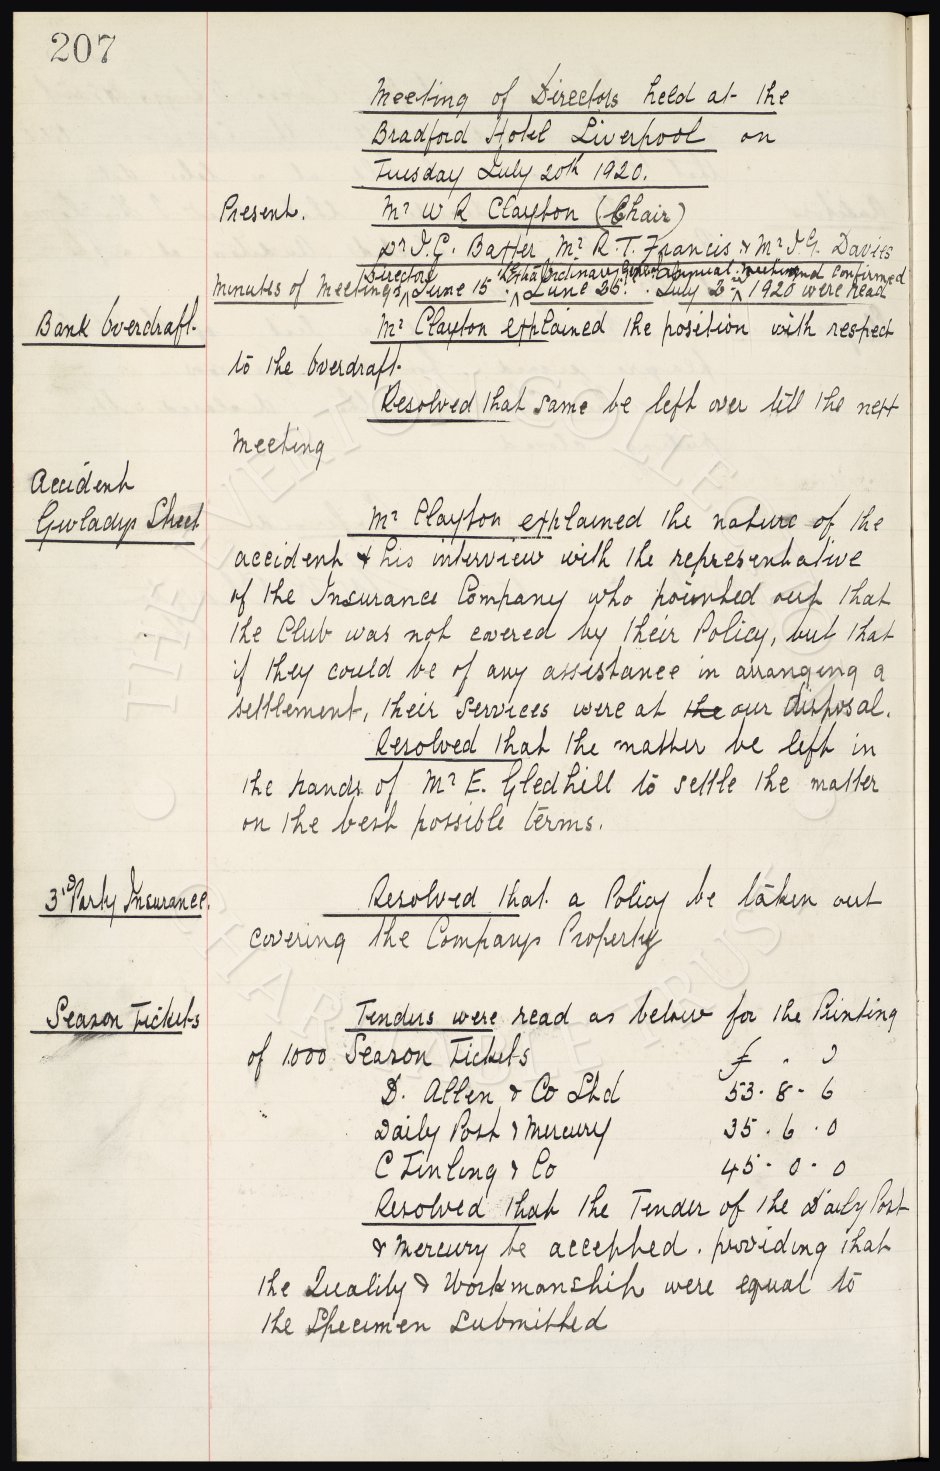 207
Meeting of Directors held at the
Bradford Hotel Liverpool on
Tuesday July 20th 1920.
Present. Mr W R Clayton (Chair)
Dr J.C. Baxter Mr R.T. Francis & Mr J.G. Davies
Directors Extra Ordinary General Annual Meeting and confirmed
Minutes of Meetings June 15th June 25th July 2nd 1920 were read
Bank Overdraft.
Mr Clayton explained the position with respect
to the Overdraft.
Resolved that same be left over till the next
meeting
Accident
Gwladys Street
Mr Clayton explained the nature of the
accident & his interview with the representative
of the Insurance Company who pointed out that
the Club was not covered by their Policy, but that
if they could be of any assistance in arranging a
settlement, their services were at the our disposal.
Resolved that the matter be left in
the hands of Mr E. Gledhill to settle the matter
on the best possible terms.
3rd Party Insurance.
Resolved that a Policy be taken out
covering the Companys Property
Season Tickets
Tenders were read as below for the Printing
of 1000 Season Tickets £ . .
D. Allen & Co Ltd 53 - 8 - 6
Daily Post & Mercury 35 . 6 . 0
C Tinling & Co 45 - 0 - 0
Resolved that the Tender of the Daily Post
& Mercury be accepted. providing that
the Quality & Workmanship were equal to
the Specimen submitted
THE EVERTON COLLECTION
CHARITABLE TRUST